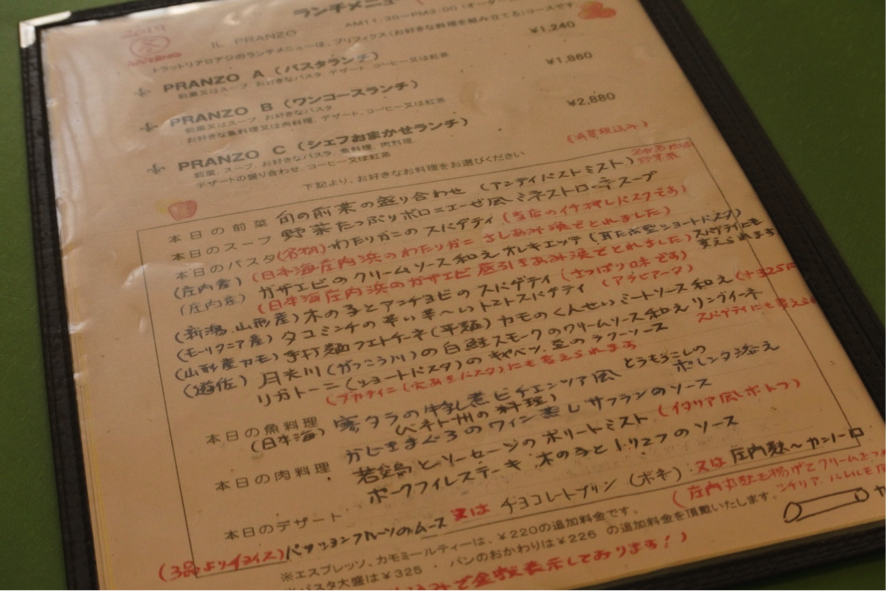 ランチメニュー
2019
IL PRANZO
AM11:30~PM3:00 (オーダー
トラットリアロアジのランチメニューは、プリフィクス(お好きな料理を組み立てる)コースです
PRANZO A (パスタランチ) ¥1,240
前菜又はスープ お好きなパスタ、デザート、コーヒー又は紅茶
PRANZO B (ワンコースランチ) ¥1,860
前菜又はスープ お好きなパスタ
お好きな魚料理又は肉料理、デザート、コーヒー又は紅茶
PRANZO C (シェフおまかせランチ) ¥2,880
前菜、スープ、お好きなパスタ、魚料理、肉料理、
デザートの盛り合わせ、コーヒー又は紅茶
(消費税込み)
下記より、お好きなお料理をお選びください
本日の前菜 旬の前菜の盛り合わせ (アンティパストミスト)
本日のスープ 野菜たっぷりボロニエーゼ風ミネストローネスープ
本日のパスタ わたりガニのスパゲティ (当店のイチ押しパスタです)
(庄内産) (日本海庄内浜のわたりガニ さしあみ漁でとれました)
(庄内産) ガサエビのクリームソース和え オレキエッテ (耳たぶ型ショートパスタ) スパゲティにも変えられます
(日本海庄内浜のガサエビ 底引きあみ漁でとれました)
(新潟、山形産) 木の子とアンチョビのスパゲティ (さっぱり味です)
(モーリタニア産) タコミンチの辛い辛~いトマトスパゲティ (アラビアータ)
(山形産カモ) 手打麺フェトチーネ(平麺) カモのくんせいミートソース和え (+325円
(遊佐) 月光川 (がっこう川) の白鮭スモークのクリームソース和え リングイーネ
スパゲティにも変えられ
リガトーニ (ショートパスタ) のキャベツ、豆のラグーソース
(ブカティーニ (穴あきパスタ) にも変えられます
本日の魚料理 寒タラの牛乳煮 ビチェンツァ風 とうもろこしのポレンタ添え
(日本海) (ベネト州の料理)
かじきまぐろのワイン蒸し サフランのソース
本日の肉料理 若鶏とソーセージのボリートミスト (イタリア風ポトフ)
ポークフィレステーキ 木の子とトリュフのソース
本日のデザート チョコレートプリン (ボネ) 又は 庄内麩~カンノーロ
(3品より1つチョイス) パッションフルーツのムース 又は
(庄内麩を揚げてクリームを
※エスプレッソ、カモミールティーは、¥220の追加料金です。
パスタ大盛は¥325・パンのおかわりは¥225 の追加料金を頂戴いたします。
込みで金額表示しております!)